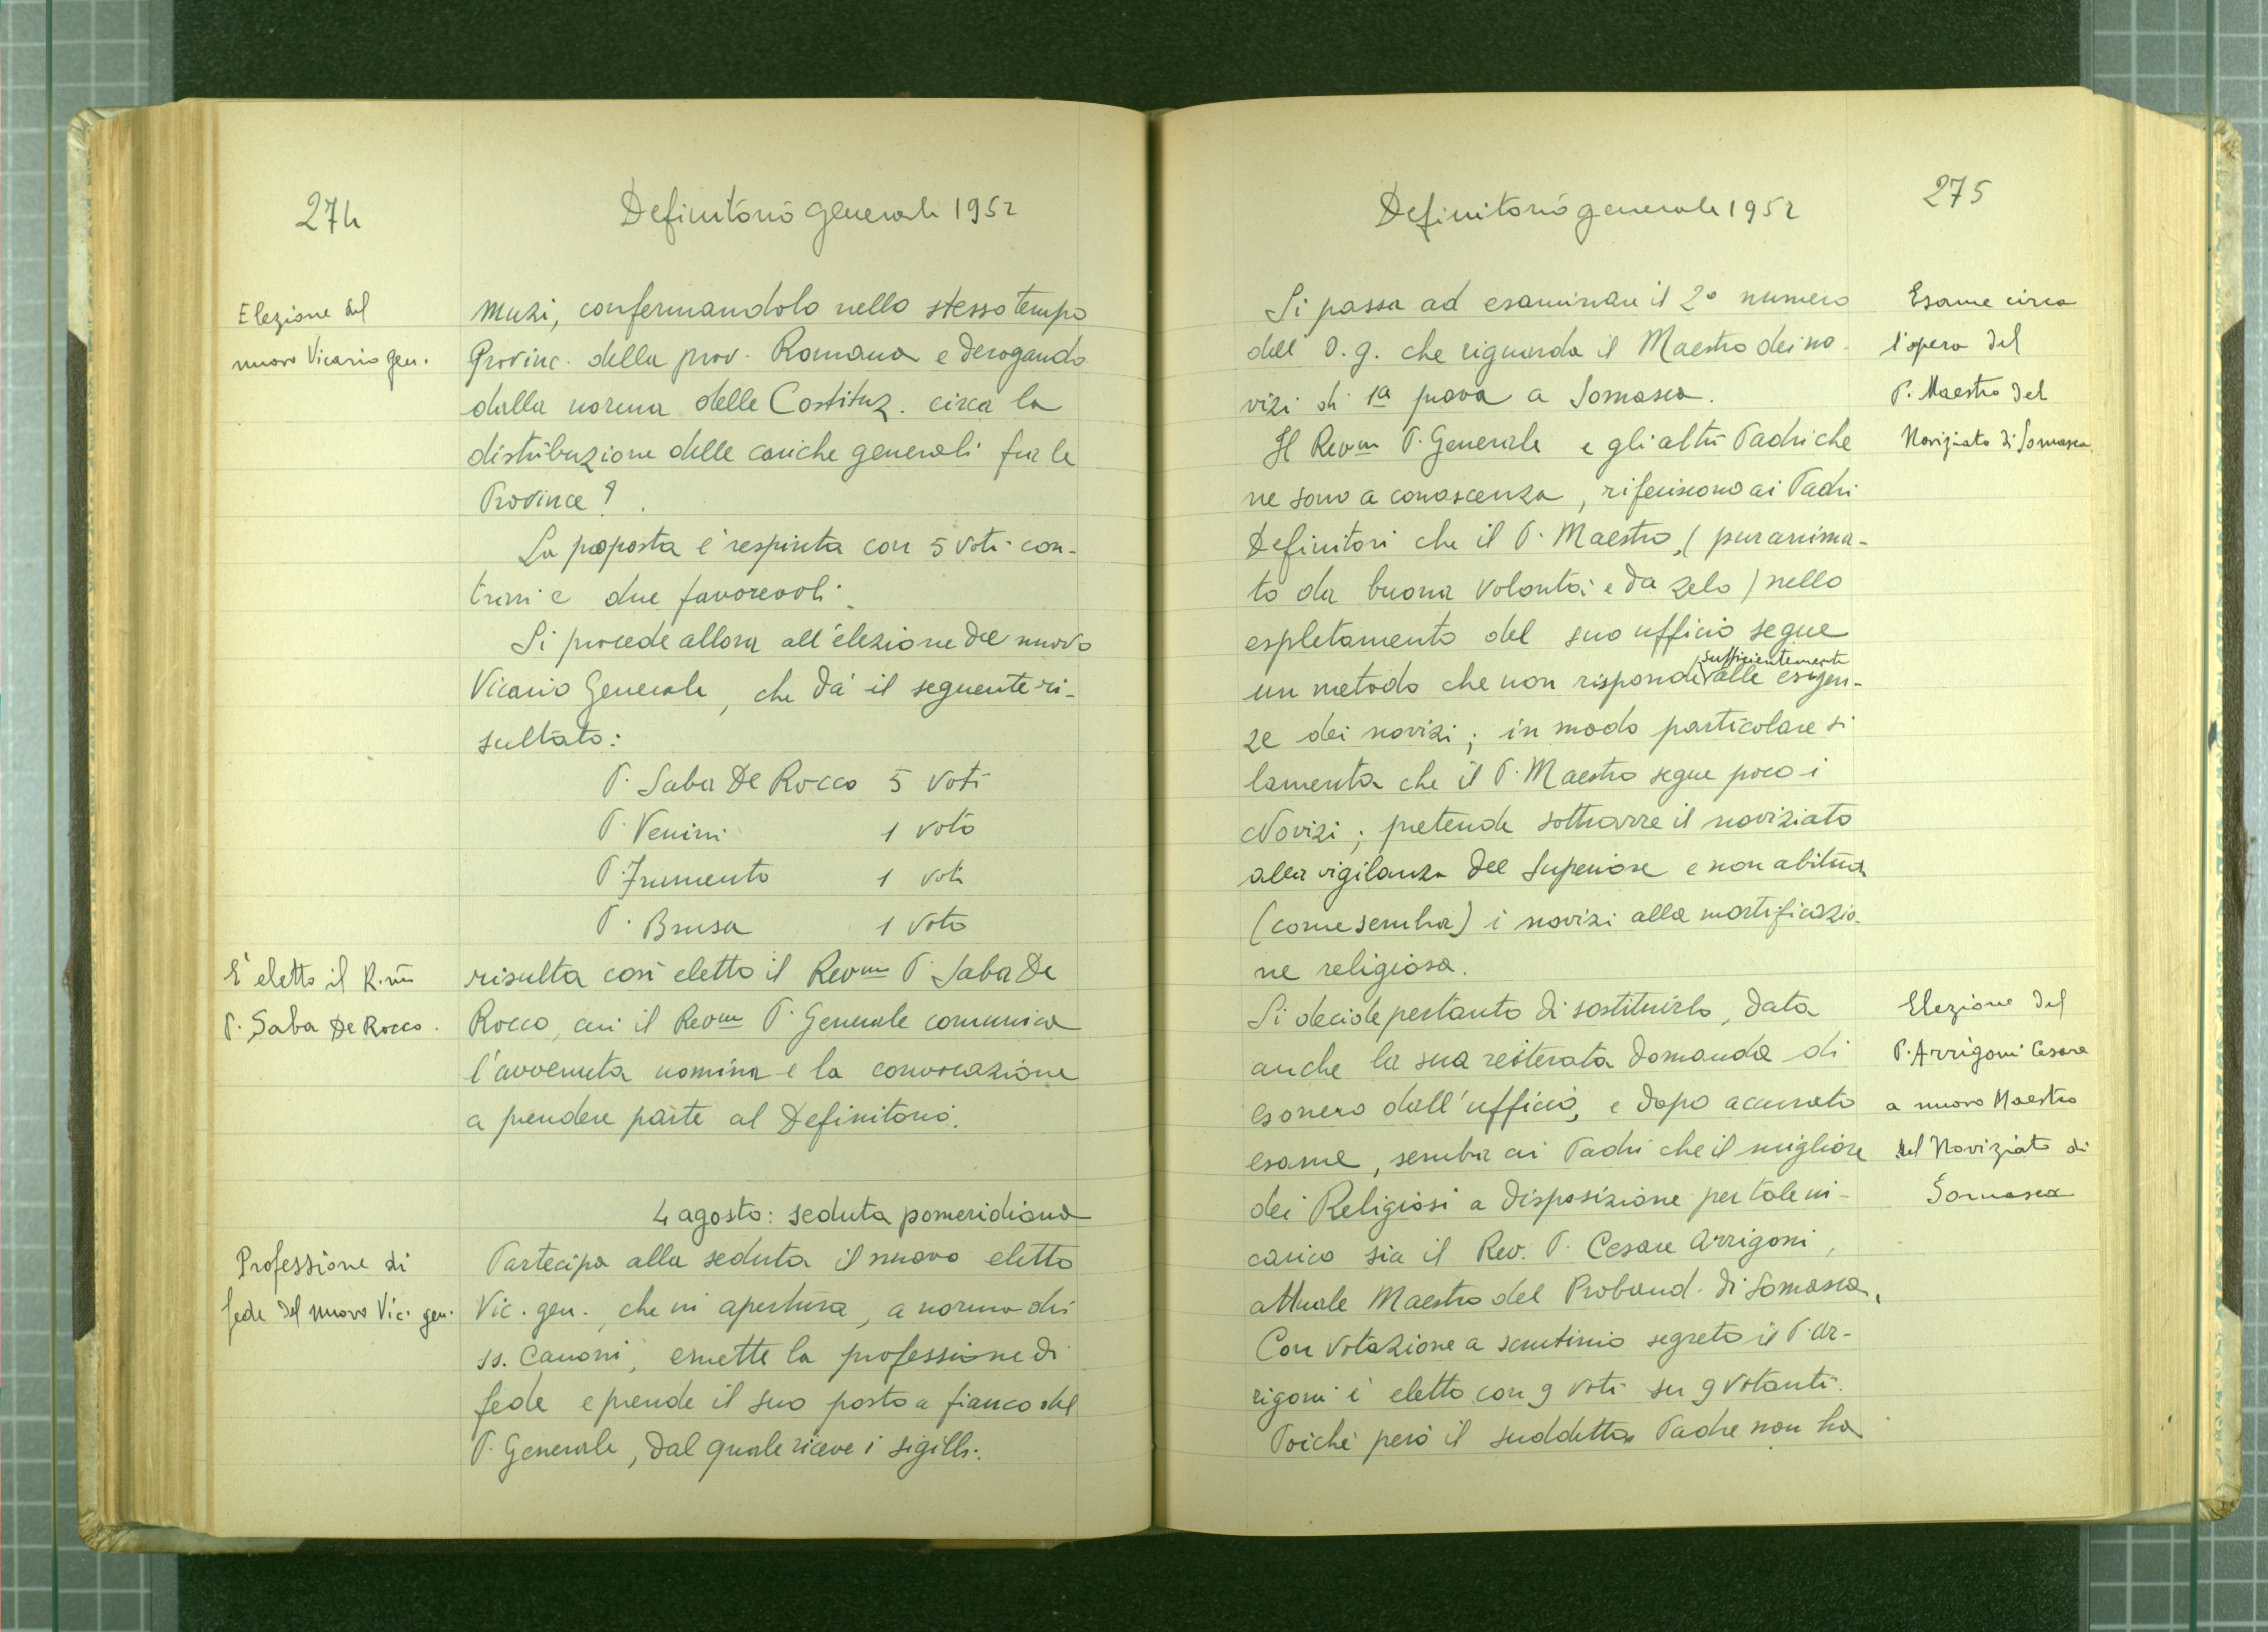 274
Definitorio generale 1952
Elezione del
nuovo Vicario gen.
Muzi, confermandolo nello stesso tempo
Provinc. della prov. Romana e derogando
dalla norma delle Costituz. circa la
distribuzione delle cariche generali fra le
Province?
La proposta è respinta con 5 voti con-
trari e due favorevoli.
Si procede allora all'elezione del nuovo
Vicario Generale, che dà il seguente ri-
sultato:
P. Saba De Rocco 5 voti
P. Venini 1 voto
P. Frumento 1 voto
P. Brusa 1 voto
È eletto il R.mo
P. Saba De Rocco.
risulta così eletto il Revm P. Saba De
Rocco, cui il Revm P. Generale comunica
l'avvenuta nomina e la convocazione
a prendere parte al Definitorio.
4 agosto: seduta pomeridiana
Professione di
fede del nuovo Vic. gen.
Partecipa alla seduta il nuovo eletto
Vic. gen., che in apertura, a norma dei
ss. Canoni, emette la professione di
fede e prende il suo posto a fianco del
P. Generale, dal quale riceve i sigilli.
Definitorio generale 1952
275
Si passa ad esaminare il 2° numero
dell' O. g. che riguarda il Maestro dei no-
vizi di 1a prova a Somasca.
Esame circa
l'opera del
P. Maestro del
Noviziato di Somasca.
Il Revm P. Generale e gli altri Padri che
ne sono a conoscenza, riferiscono ai Padri
Definitori che il P. Maestro, (pur anima-
to da buona volontà e da zelo) nello
espletamento del suo ufficio segue
un metodo che non risponde sufficientemente alle esigen-
ze dei novizi; in modo particolare si
lamenta che il P. Maestro segue poco i
Novizi; pretende sottrarre il noviziato
alla vigilanza del Superiore e non abitua
(come sembra) i novizi alla mortificazio-
ne religiosa.
Si decide pertanto di sostituirlo, data
anche la sua reiterata domanda di
esonero dall'ufficio, e dopo accurato
esame, sembra ai Padri che il migliore
dei Religiosi a disposizione per tale in-
carico sia il Rev. P. Cesare Arrigoni,
attuale Maestro del Proband. di Somasca.
Elezione del
P. Arrigoni Cesare
a nuovo Maestro
del Noviziato di
Somasca
Con votazione a scrutinio segreto il P. Ar-
rigoni è eletto con 9 voti su 9 votanti.
Poiché però il suddetto Padre non ha